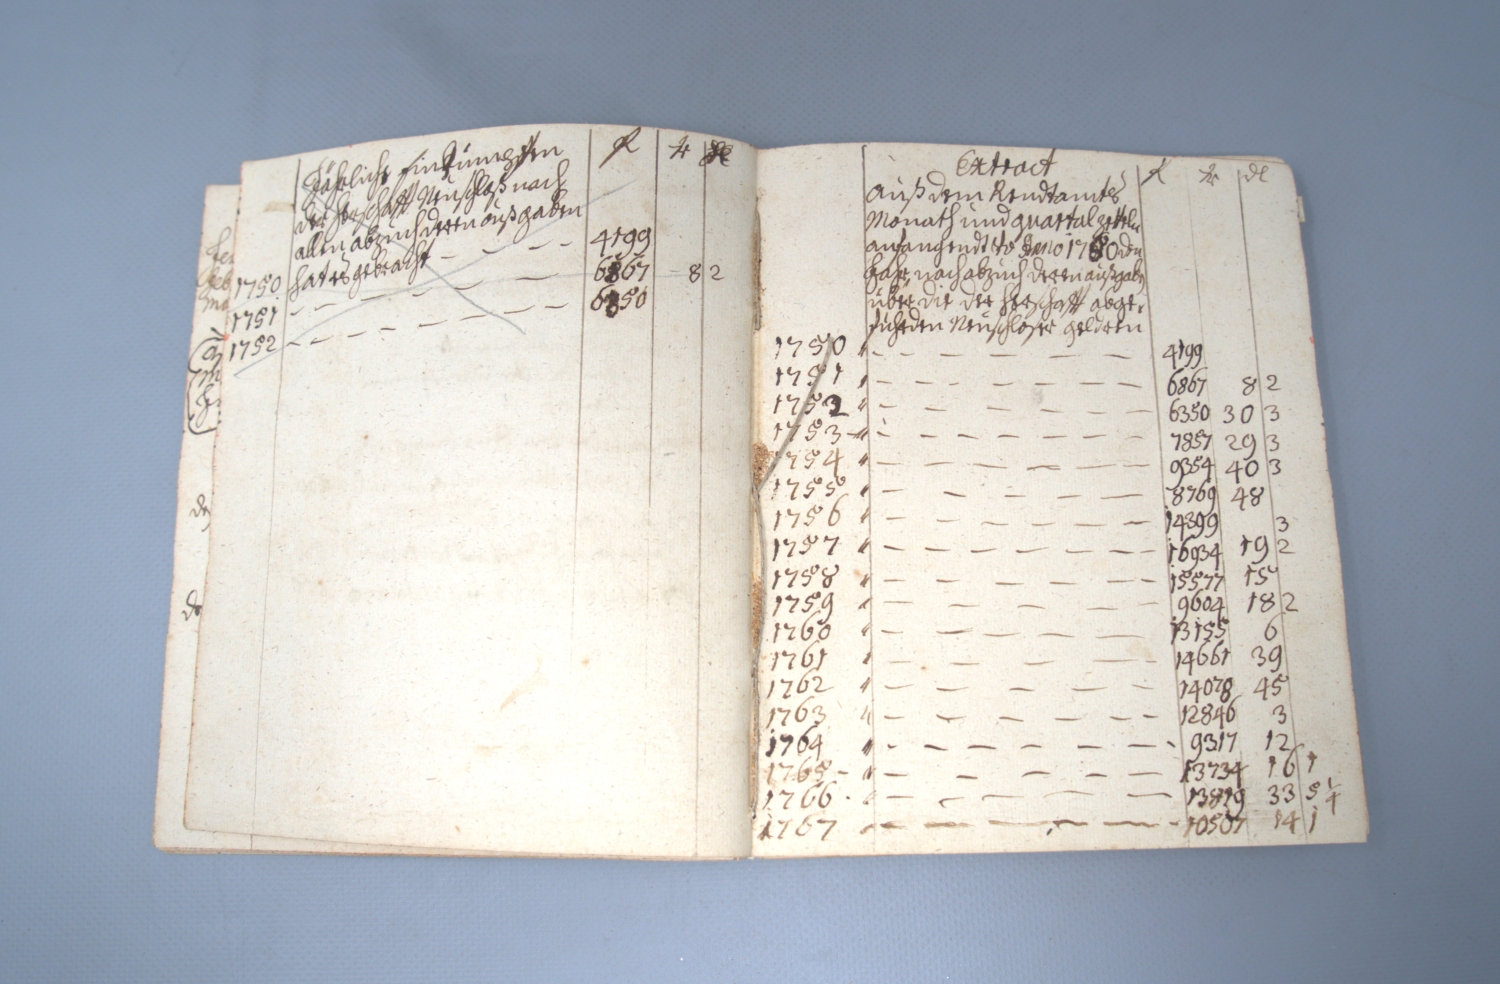 Jährliche Einkünfften fl kr dl
der Herschafft Neuschloß nach
allen abzuch deren außgaben
1750 hat es gebracht – – – – 4199
1751 – – – – – – 6867 – 8 2
1752 – – – – – – 6350
Extract fl kr dl
auß dem Rendtamts
Monath und quartal zetteln
anfangendt 1750
Jahr nach abzuch deren außgaben
über die der Herschafft abge-
führden Neuschloser geldern
1750 " – – – – – 4199
1751 " – – – – – 6867 8 2
1752 " – – – – – 6350 30 3
1753 " – – – – – 7857 29 3
1754 " – – – – – 9354 40 3
1755 " – – – – – 8769 48
1756 " – – – – – 14399 3
1757 " – – – – – 16934 19 2
1758 " – – – – – 15577 15
1759 " – – – – – 9604 18 2
1760 " – – – – – 13155 6
1761 " – – – – – 14661 39
1762 " – – – – – 14078 45
1763 " – – – – – 12846 3
1764 " – – – – – 9317 12
1765 " – – – – – 13734 16 1
1766 " – – – – – 13819 33 5 1/4
1767 " – – – – – 10507 14 1